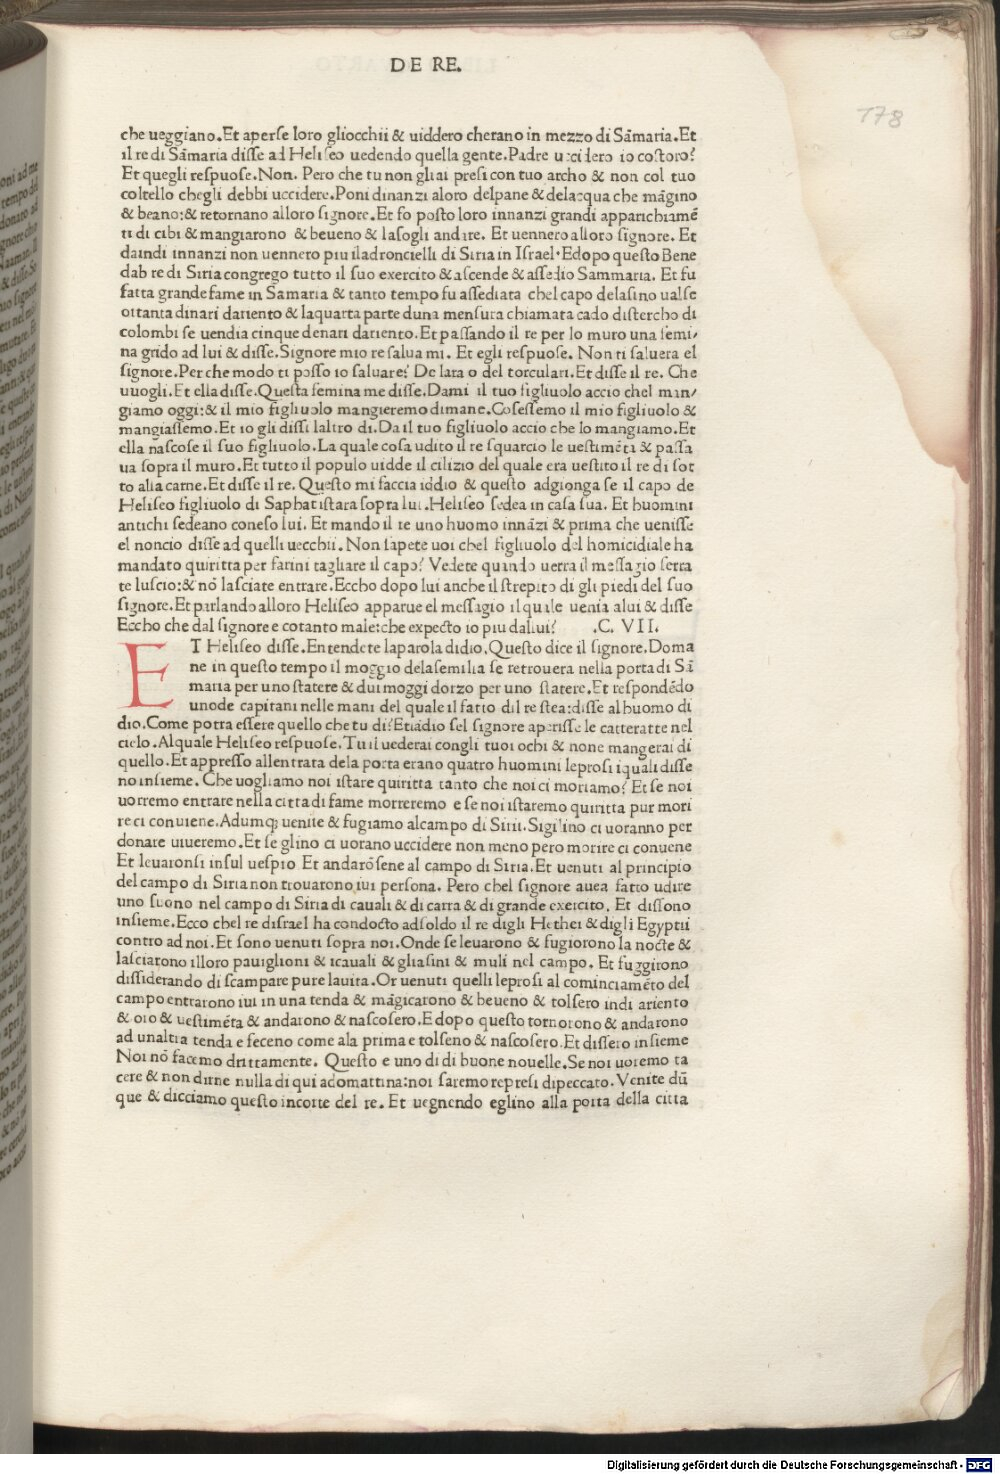 DE RE.
178
che ueggiano.Et aperse loro gliocchii & uiddero cherano in mezzo di Sãmaria.Et
il re di Sãmaria disse ad Heliseo uedendo quella gente.Padre uccidero io costoro?
Et quegli respuose.Non. Pero che tu non gliai presi con tuo archo & non col tuo
coltello chegli debbi uccidere.Poni dinanzi aloro delpane & delacqua che mãgino
& beano:& retornano alloro signore.Et fo posto loro innanzi grandi apparichiamẽ
ti di cibi & mangiarono & beueno & lasogli andare. Et uennero alloro signore. Et
daindi innanzi non uennero piu iladroncielli di Siria in Israel.Edopo questo Bene
dab re di Siria congrego tutto il suo exercito & ascende & assedio Sammaria. Et fu
fatta grande fame in Samaria & tanto tempo fu assediata chel capo delasino ualse
ottanta dinari dariento & laquarta parte duna mensura chiamata cado di stercho di
colombi se uendia cinque denari dariento. Et passando il re per lo muro una femi/
na grido ad lui & disse.Signore mio re salua mi. Et egli respuose. Non ti saluera el
signore.Per che modo ti posso io saluare? De lara o del torculari.Et disse il re. Che
uuogli.Et ella disse.Questa femina me disse.Dami il tuo figliuolo accio chel man/
giamo oggi:& il mio figliuolo mangieremo dimane.Cosessemo il mio figliuolo &
mangiassemo.Et io gli dissi laltro di.Da il tuo figliuolo accio che lo mangiamo.Et
ella nascose il suo figliuolo.La quale cosa udito il re squarcio le uestimẽti & passa
ua sopra il muro.Et tutto il populo uidde il cilizio del quale era uestito il re di sot
to alla carne.Et disse il re. Questo mi faccia iddio & questo adgionga se il capo de
Heliseo figliuolo di Saphat istara sopra lui.Heliseo sedea in casa sua. Et huomini
antichi sedeano coneso lui. Et mando il re uno huomo innãzi & prima che uenisse
el noncio disse ad quelli uecchii. Non sapete uoi chel figliuolo del homicidiale ha
mandato quiritta per farini tagliare il capo? Vedete quando uerra il messagio serra
te luscio:& nõ lasciate entrare.Eccho dopo lui anche il strepito di gli piedi del suo
signore.Et parlando alloro Heliseo apparue el messagio il quale uenia alui & disse
Eccho che dal signore e cotanto male:che expecto io piu dalui? .C. VII.
ET Heliseo disse.Entendete laparola didio.Questo dice il signore.Doma
ne in questo tempo il moggio delasemilia se retrouera nella porta di Sã
maria per uno statere & dui moggi dorzo per uno statere.Et respondẽdo
unode capitani nelle mani del quale il fatto dil re stea:disse al huomo di
dio.Come potra essere quello che tu di?Etiãdio sel signore aperisse le catteratte nel
cielo.Alquale Heliseo respuose.Tu il uederai congli tuoi ochi & none mangerai di
quello.Et appresso allentrata dela porta erano quatro huomini leprosi iquali disse
no insieme. Che uogliamo noi istare quiritta tanto che noi ci moriamo? Et se noi
uorremo entrare nella citta di fame morreremo e se noi istaremo quiritta pur mori
re ci conuiene.Adumq; uenite & fugiamo alcampo di Sirii.Sigilino ci uoranno per
donare uiueremo.Et se glino ci uorano uccidere non meno pero morire ci conuene
Et leuaronsi insul uespro Et andarõsene al campo di Siria.Et uenuti al principio
del campo di Siria non trouarono iui persona. Pero chel signore auea fatto udire
uno suono nel campo di Siria di cauali & di carra & di grande exercito. Et dissono
insieme.Ecco chel re disrael ha condocto adsoldo il re digli Hethei & digli Egyptii
contro ad noi.Et sono uenuti sopra noi.Onde se leuarono & fugiorono la nocte &
lasciarono illoro pauiglioni & icauali & gliasini & muli nel campo. Et fuggirono
dissiderando di scampare pure lauita.Or uenuti quelli leprosi al cominciamẽto del
campo entrarono iui in una tenda & mãgicarono & beueno & tolsero indi ariento
& oro & uestimẽta & andarono & nascosero.E dopo questo tornorono & andarono
ad unaltra tenda e feceno come ala prima e tolseno & nascosero.Et dissero insieme
Noi nõ facemo drittamente. Questo e uno di di buone nouelle.Se noi uoremo ta
cere & non dirne nulla di qui adomattina:noi saremo represi dipeccato.Venite dũ
que & dicciamo questo incorte del re. Et uegnendo eglino alla porta della citta
Digitalisierung gefördert durch die Deutsche Forschungsgemeinschaft - DFG